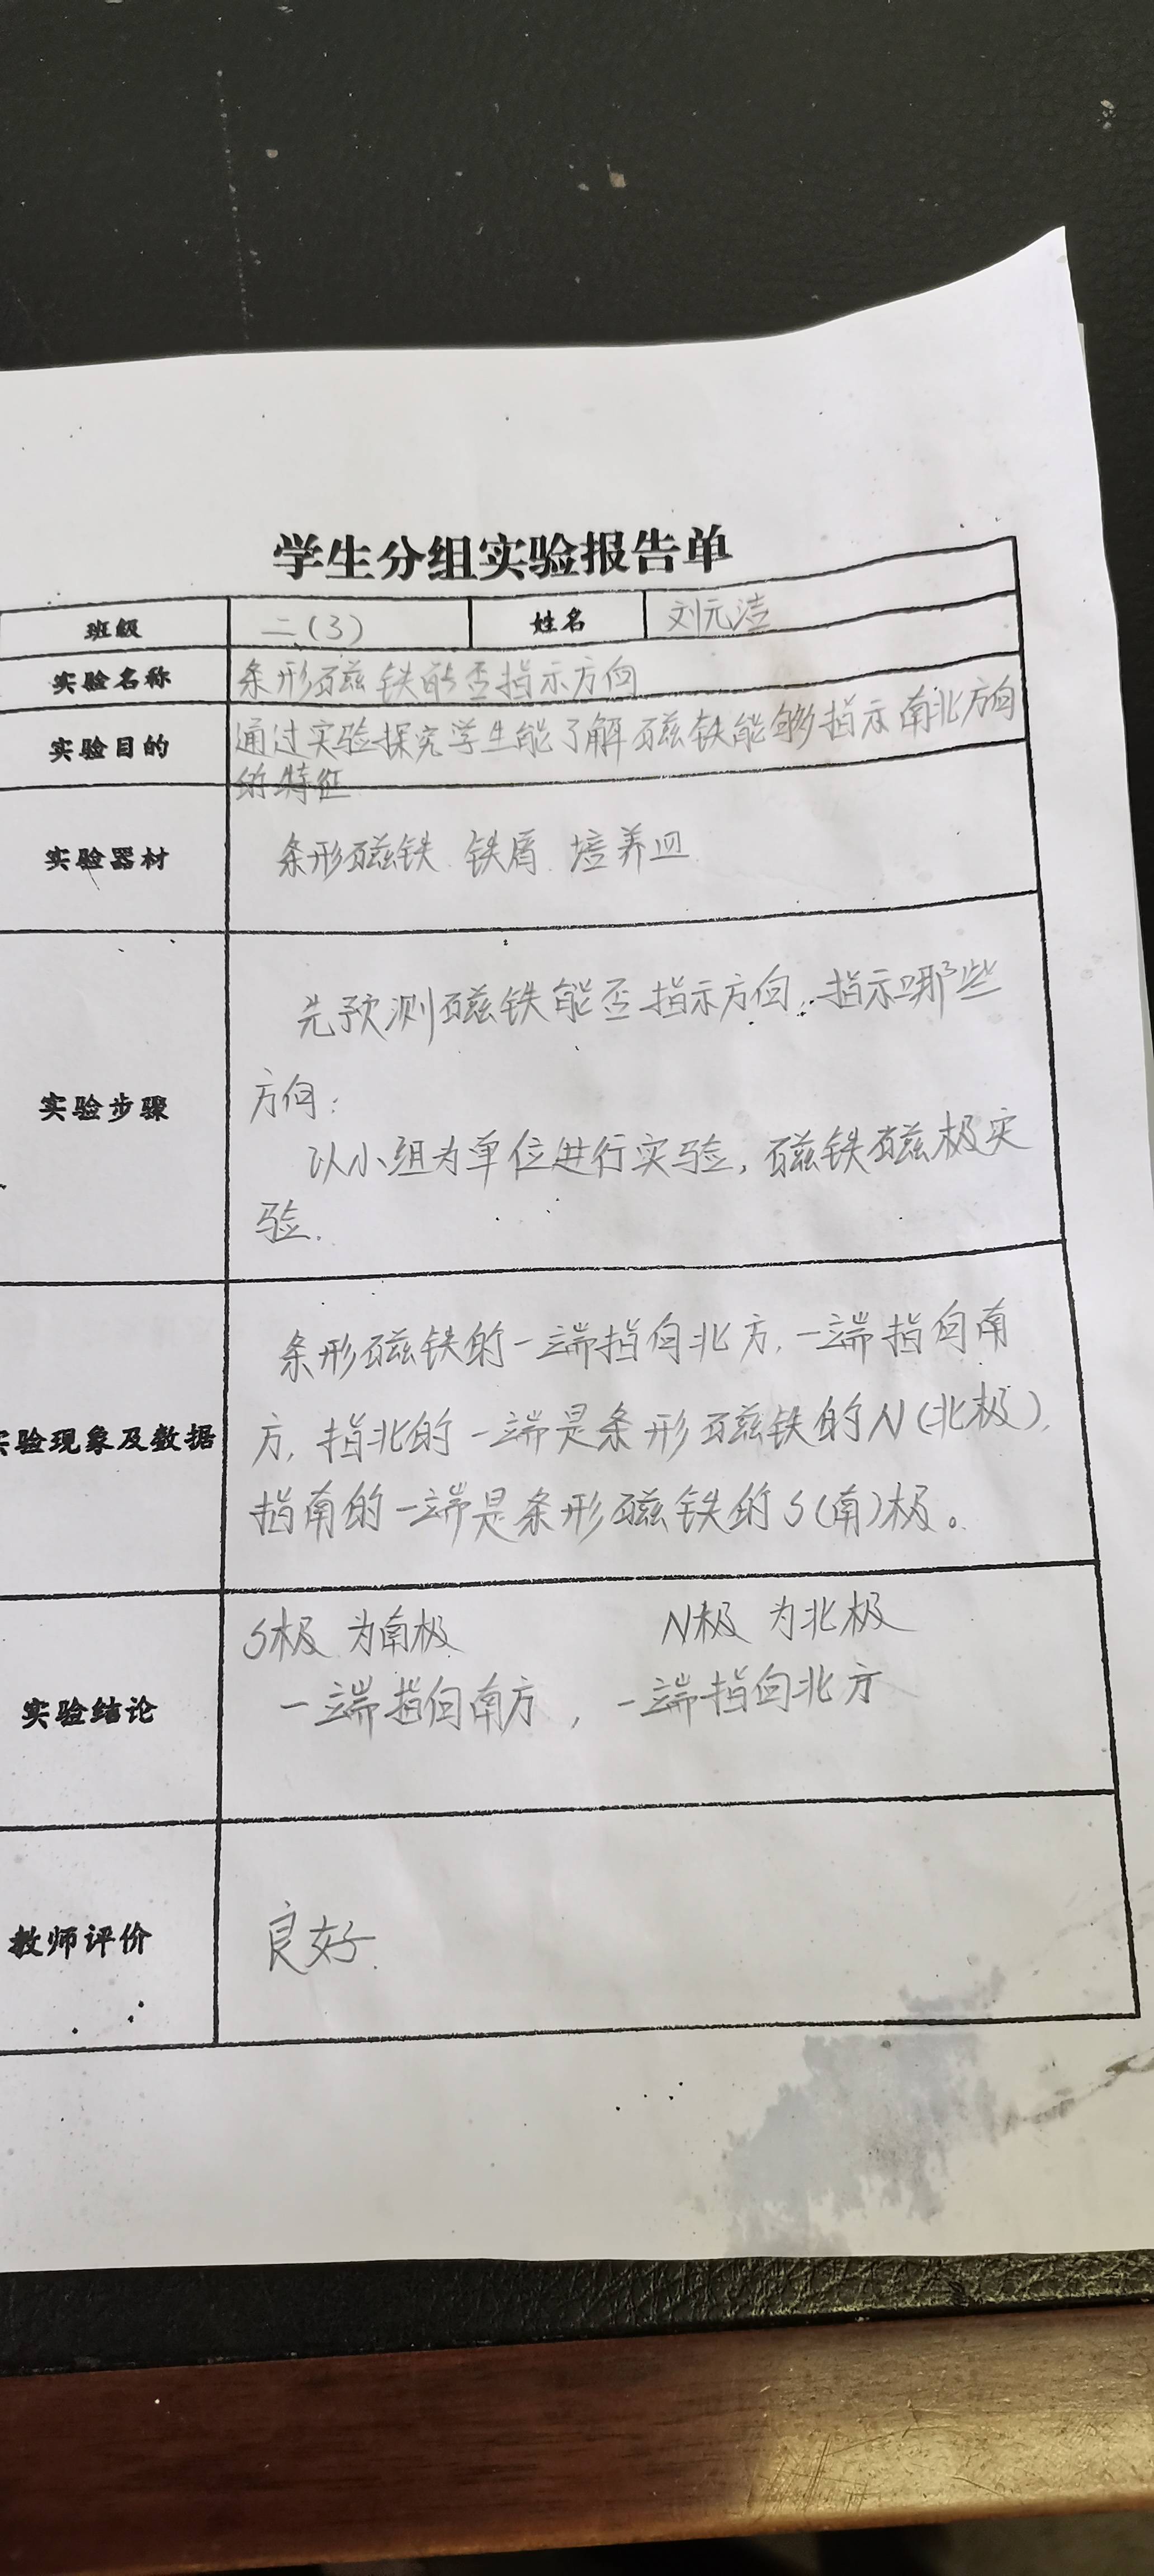 学生分组实验报告单
班级 二(3) 姓名 刘元洁
实验名称 条形磁铁能否指示方向
实验目的 通过实验探究学生能了解磁铁能够指示南北方向
的特征
实验器材 条形磁铁 铁屑 培养皿
先预测磁铁能否指示方向,指示哪些
实验步骤 方向:
以小组为单位进行实验,磁铁磁极实
验.
条形磁铁的一端指向北方,一端指向南
实验现象及数据 方,指北的一端是条形磁铁的N(北极),
指南的一端是条形磁铁的S(南)极。
S极 为南极 N极 为北极
实验结论 一端指向南方,一端指向北方
教师评价 良好.